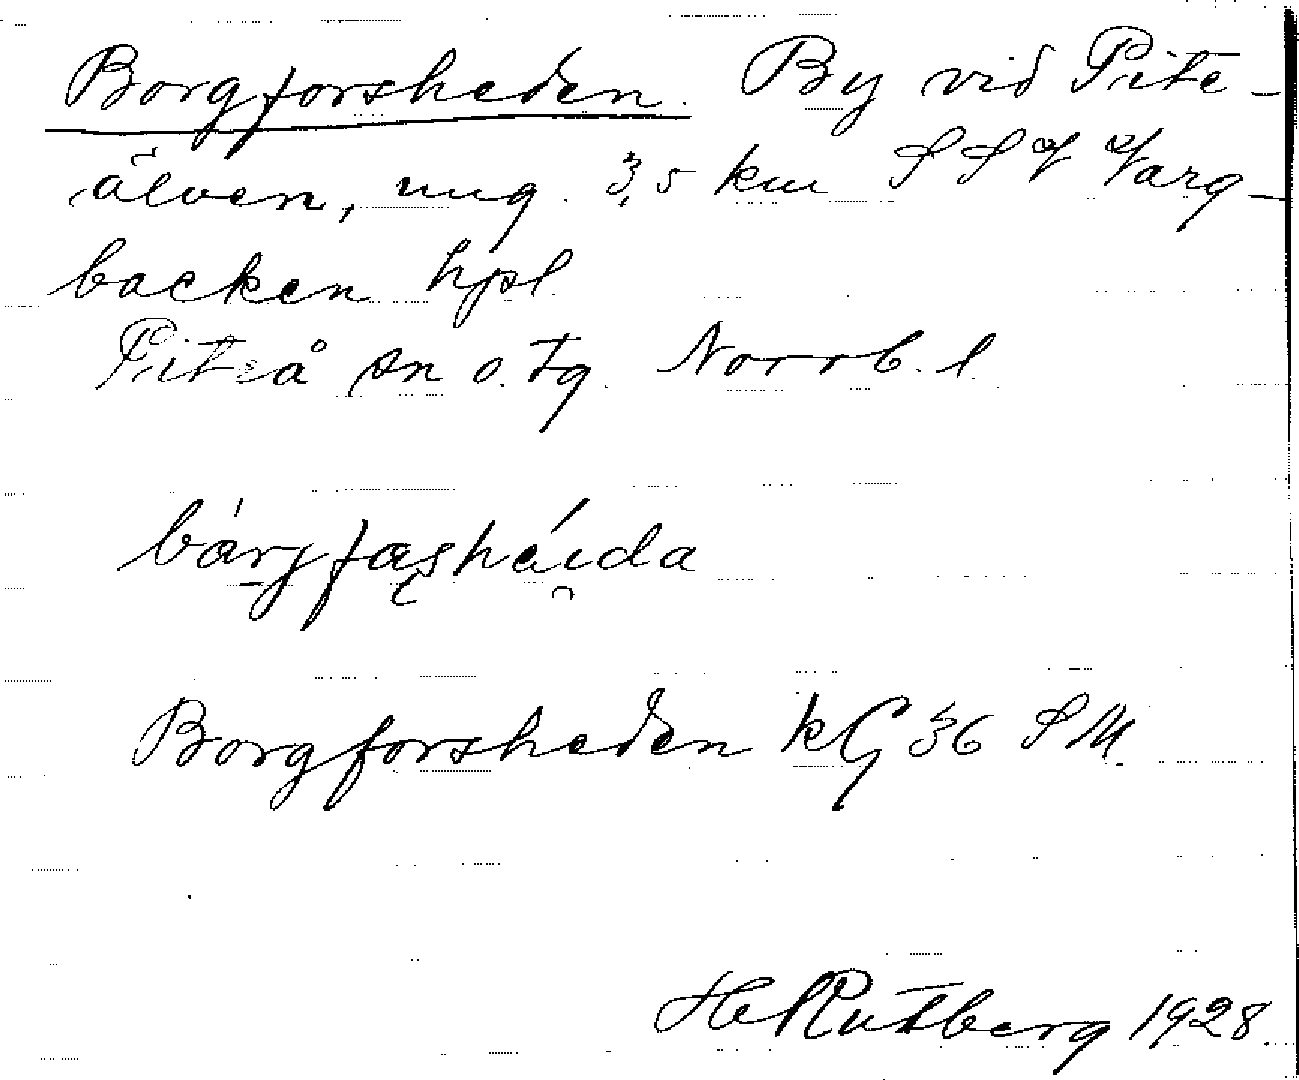 Borgforsheden. By vid Pite-
älven, ung. 3,5 km SSV Varg-
backen hpl
Piteå sn o. tg. Norrb. l
Borgforsheden kG 36 SM.
H Rutberg 1928.